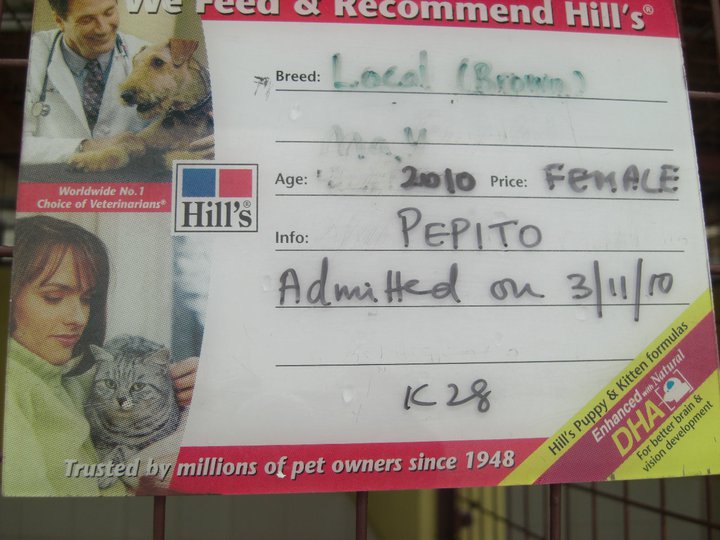 We Feed & Recommend Hill's®
Breed: Local (Brown)
Age: 2010 Price: FEMALE
Worldwide No.1
Choice of Veterinarians®
Hill's®
Info: PEPITO
Admitted on 3/11/10
K28
Hill's Puppy & Kitten formulas
Enhanced with Natural
DHA
For better brain &
vision development
Trusted by millions of pet owners since 1948